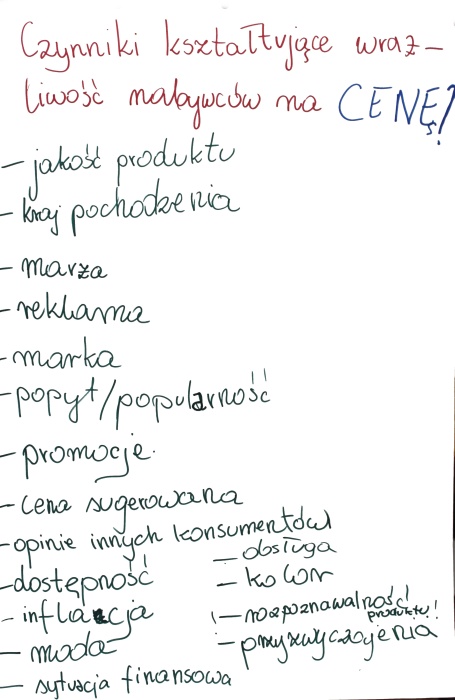 Czynniki kształtujące wraż-
liwość nabywców na CENĘ!
- jakość produktu
- kraj pochodzenia
- marża
- reklama
- marka
- popyt/popularność
- promocje.
- cena sugerowana
- opinie innych konsumentów
- dostępność
- inflacja
- moda
- sytuacja finansowa
- obsługa
- kolor
- rozpoznawalność
produktu!
- przyzwyczajenia